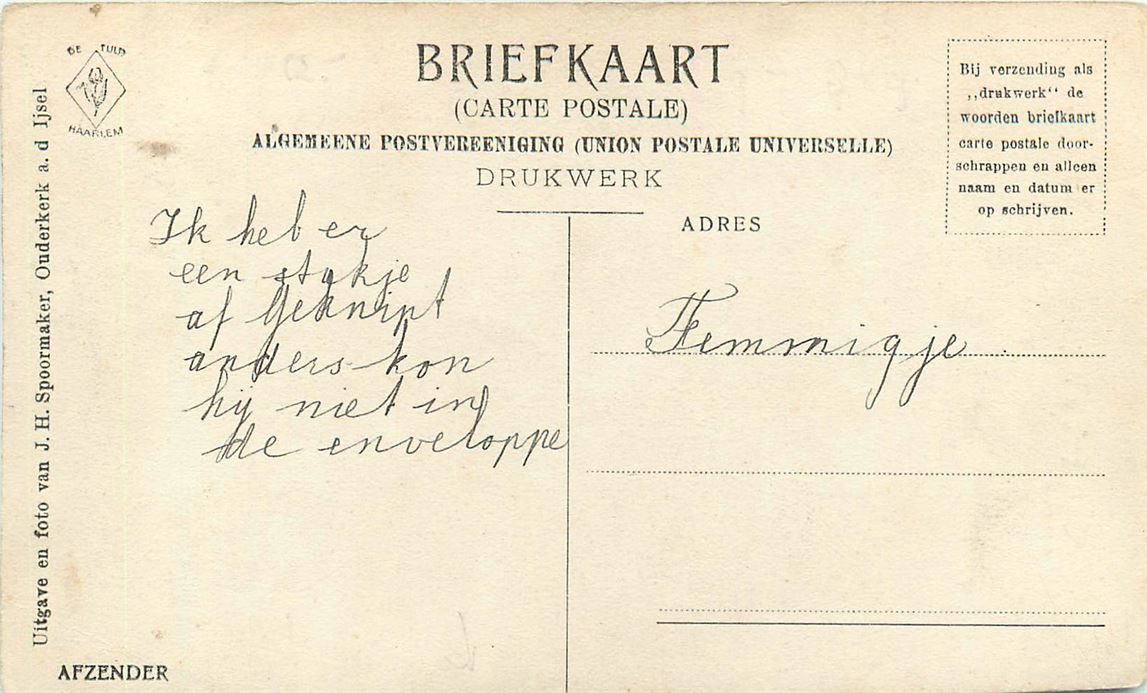 DE TULP
HAARLEM
BRIEFKAART
(CARTE POSTALE)
ALGEMEENE POSTVEREENIGING (UNION POSTALE UNIVERSELLE)
DRUKWERK
Bij verzending als
,,drukwerk‘‘ de
woorden briefkaart
carte postale door-
schrappen en alleen
naam en datum er
op schrijven.
Uitgave en foto van J. H. Spoormaker, Ouderkerk a. d Ijsel
Ik heb er
een stukje
af geknipt
anders kon
hij niet in
de enveloppe
ADRES
Femmigje
AFZENDER